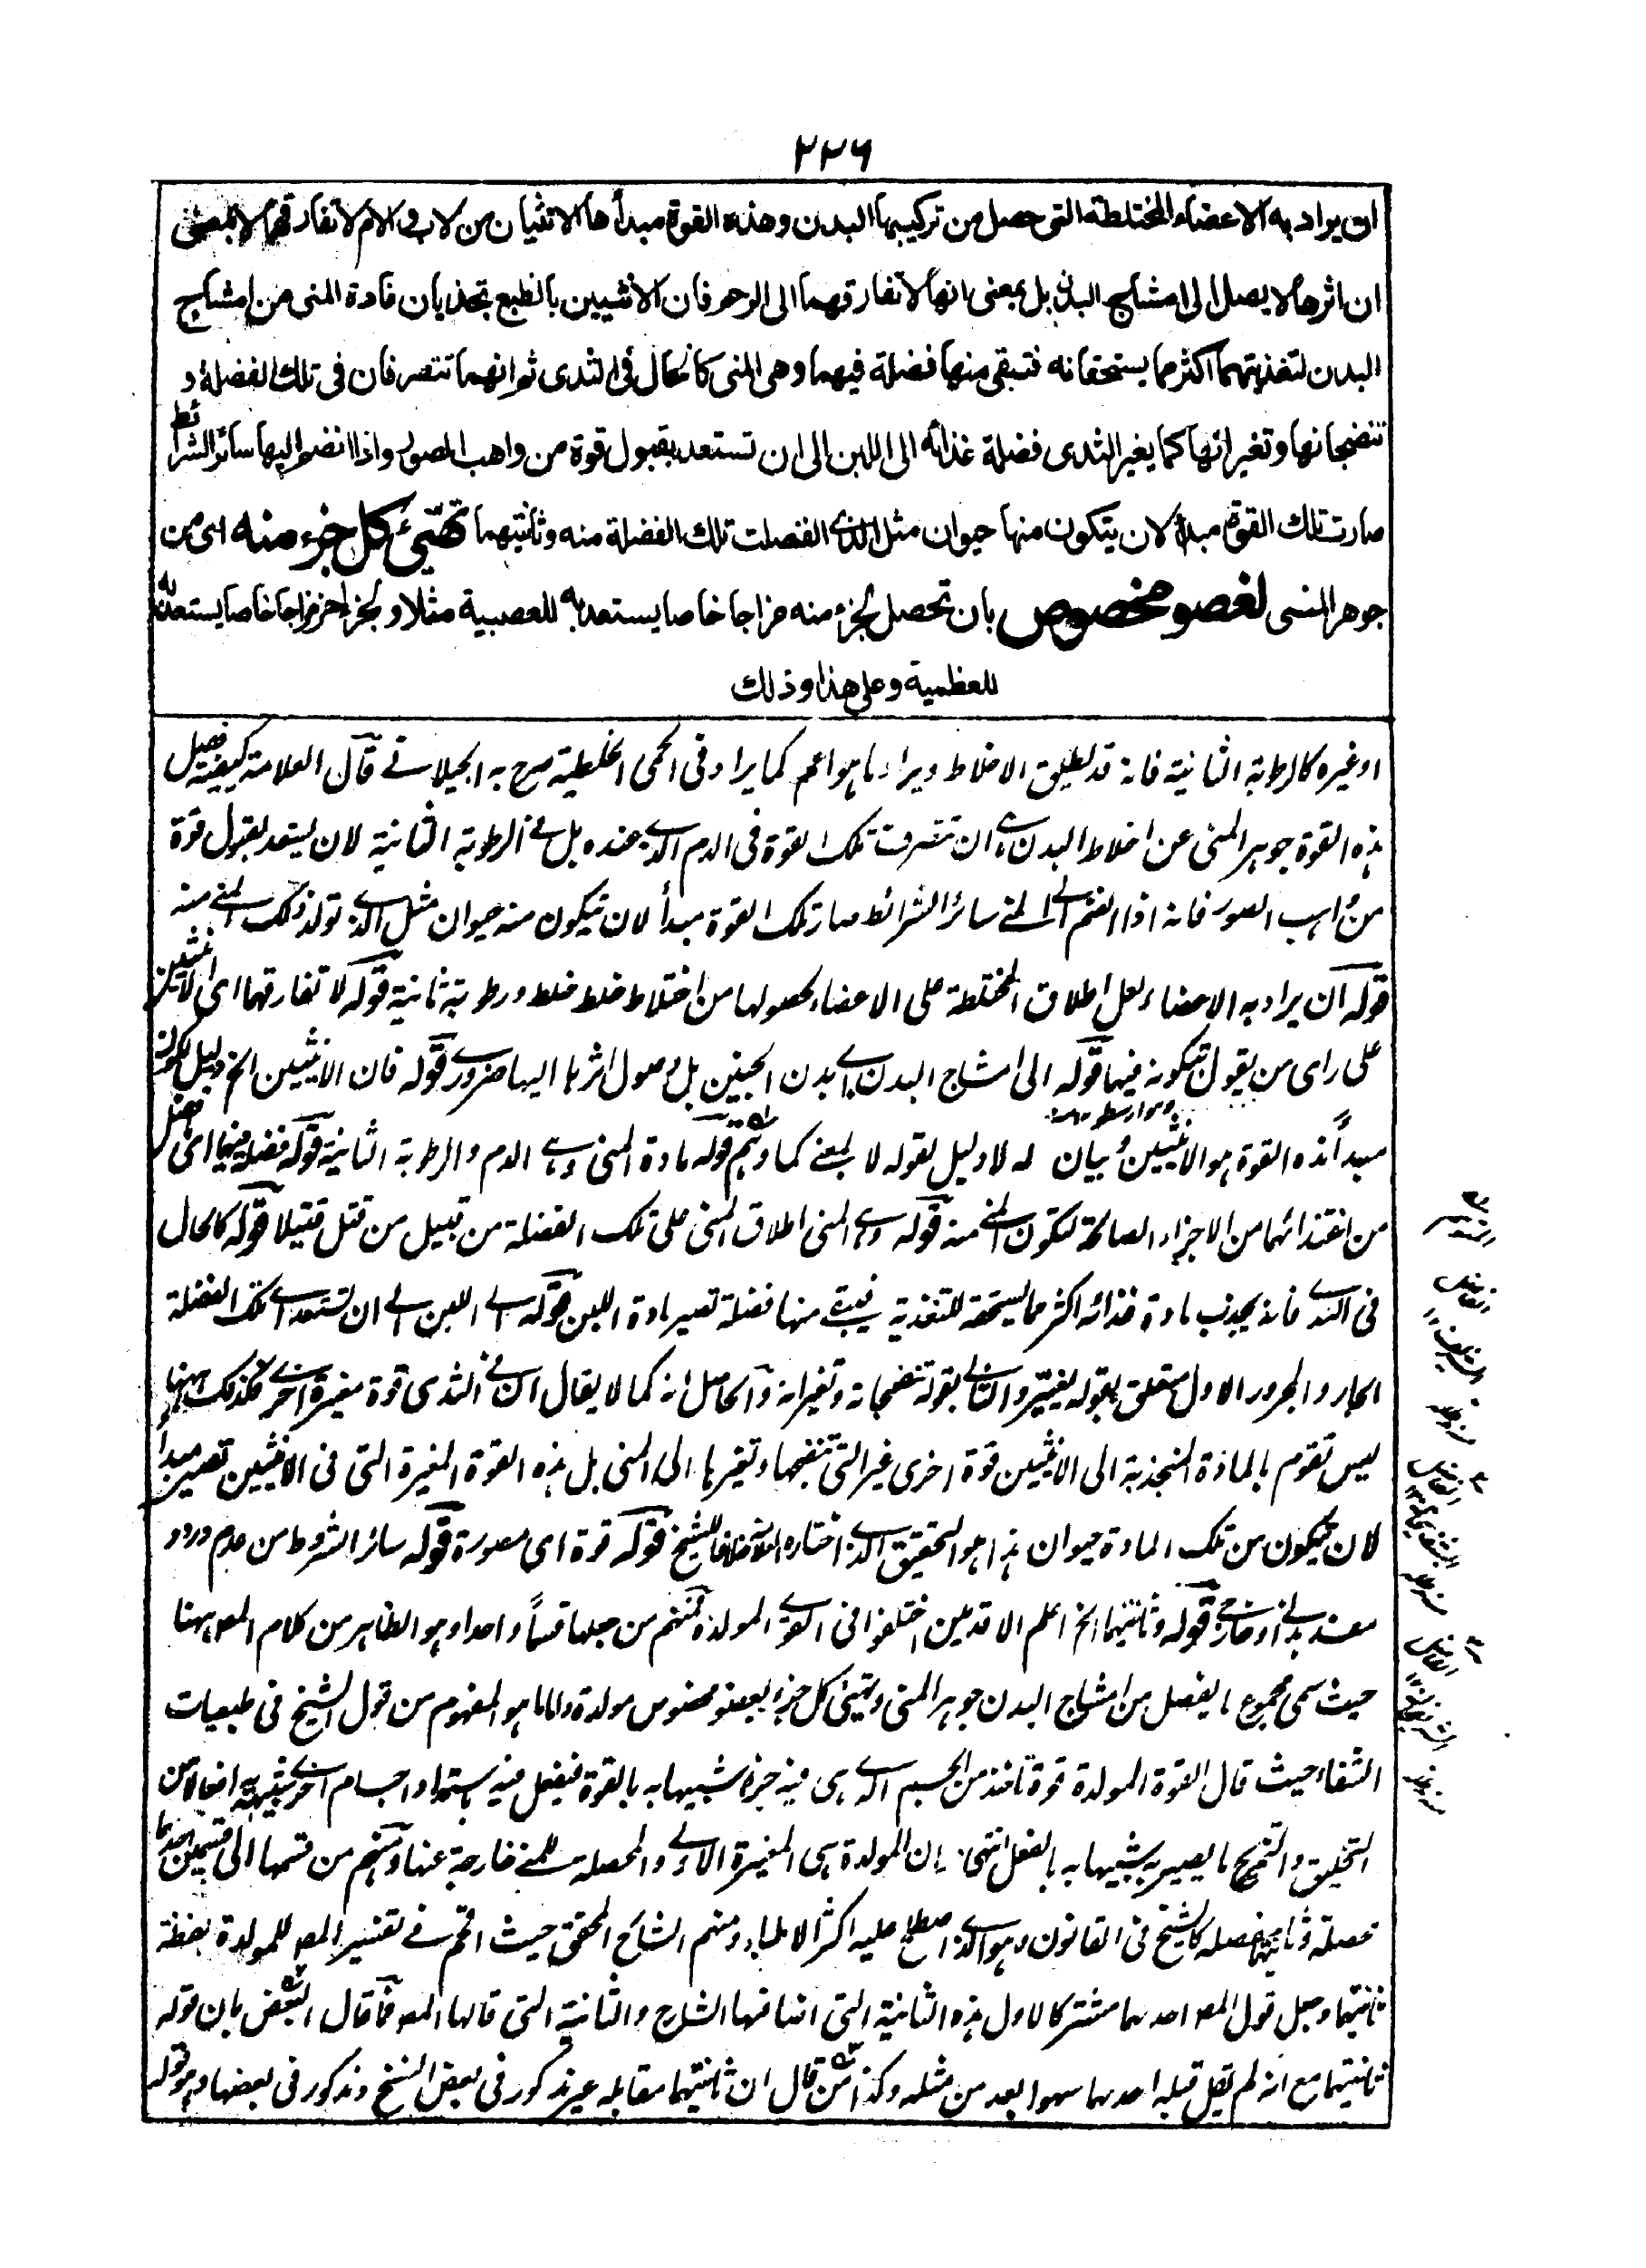 ٢٢٦
ان يراد به الاعضاء المختلطة التى حصل من تركيبها البدن وهذه القوة مبدأها الانثيان من الاب و الام لا تفارقهما لا بمعنى
ان اثرها لا يصل الى امشاج البدن بل بمعنى انها لا تفارقهما الى الرحم فان الانثيين بالطبع تجذبان مادة المنى من امشاج
البدن لتغذيتهما اكثر مما يستحقانه فتبقى منها فضلة فيهما وهى المنى كالحال فى الثدى ثم انهما تتصرفان فى تلك الفضلة و
تنضجانها وتغيرانها كما يغير الثدى فضلة غذائه الى اللبن الى ان تستعد بقبول قوة من واهب الصور واذا انضم اليها سائر الشرائط
صارت تلك القوة مبدأ لان يتكون منها حيوان مثل الذى انفصلت تلك الفضلة منه وثانيتهما تهيئ كل جزء منه اى من
جوهر المنى لعضو مخصوص بان تحصل لجزء منه مزاجا خاصا يستعد به للعصبية مثلا و لجزء اخر مزاجا خاصا يستعد به
للعظمية وعلى هذا وذلك
او غيره كالرطوبة الثانية فانه قد يطلق الاخلاط ويراد ما هو اعم كما يراد فى الحمى الخلطية صرح به الجيلانى قال العلامة كيفية فصل
هذه القوة جوهر المنى عن اخلاط البدن اى ان تتصرف تلك القوة فى الدم الذى عنده بل فى الرطوبة الثانية لان يستعد بقبول قوة
من واهب الصور فانه اذا انضم الى المنى سائر الشرائط صار تلك القوة مبدأ لان يتكون منه حيوان مثل الذى تولد ذلك المنى منه
قوله ان يراد به الاعضاء لعل اطلاق المختلطة على الاعضاء لحصولها من اختلاط خلط خلط ورطوبة ثانية قوله لا تفارقهما اى الانثيين
على راى من يقول بتكونه فيهما قوله الى امشاج البدن اى بدن الجنين بل وصول اثرها اليها ضرورى قوله فان الانثيين الخ دليل لكون
مبدأ هذه القوة هو الانثيين وبيان له لا دليل لقوله لا بمعنى كما وهم قوله مادة المنى وهى الدم والرطوبة الثانية قوله فضلة فيهما اى فضل
من اغتذائهما من الاجزاء الصالحة لتكون المنى منه قوله وهى المنى اطلاق المنى على تلك الفضلة من قبيل من قتل قتيلا قوله كالحال
فى الثدى فانه يجذب مادة غذائه اكثر مما يستحقه للتغذية فيبقى منها فضلة تصير مادة اللبن قوله الى اللبن الى ان تستعد اى تلك الفضلة
الجار والمجرور الاول متعلق بقوله يغير والثانى بقوله تنضجانه وتغيرانه والحاصل انه كما لا يقال ان فى الثدى قوة مغيرة اخرى فكذلك ههنا
ليس تقوم بالمادة المنجذبة الى الانثيين قوة اخرى غير التى تنضجها وتغيرها الى المنى بل هذه القوة المغيرة التى فى الانثيين تصير مبدأ
لان يتكون من تلك المادة حيوان هذا هو التحقيق الذى اختاره خلافا للشيخ قوله قوة اى مصورة قوله سائر الشروط من عدم ورود
مفسد بدنى او خارجى قوله وثانيتهما الخ اعلم الاقدمين اختلفوا فى القوى المولدة فمنهم من جعلها قسماً واحدا وهو الظاهر من كلام المص ههنا
حيث سمى مجموع ما يفصل من امشاج البدن جوهر المنى وتهيئ كل جزء لعضو مخصوص مولدة واما ما هو المفهوم من قول الشيخ فى طبعيات
الشفاء حيث قال القوة المولدة قوة تاخذ من الجسم الذى هى فيه جزءا شبيها به بالقوة فيفعل فيه باستمداد اجسام اخرى تتشبه به افعالا من
التخليق والتمزيج ما يصير به شبيها به بالفعل انتهى ان المولدة هى المغيرة الاولى والمحصلة للمنى خارجة عنها ومنهم من قسمها الى قسمين احدهما
محصلة وثانيهما مفصلة كالشيخ فى القانون وهو الذى اصطلح عليه اكثر الاطباء ومنهم الشارح المحقق حيث اقحم فى تفسير المص للمولدة لفظة
ثانيتهما وجعل قول المص احدهما مشتركا لاول هذه الثانية التى اضافها الشارح والثانية التى قالها المص فما قال البعض بان قوله
ثانيتهما مع انه لم يقل قبله احدهما سهوا بعد من مثله وكذا من قال ان ثانيتهما مقابله غير مذكور فى بعض النسخ ومذكور فى بعضها وهو قوله